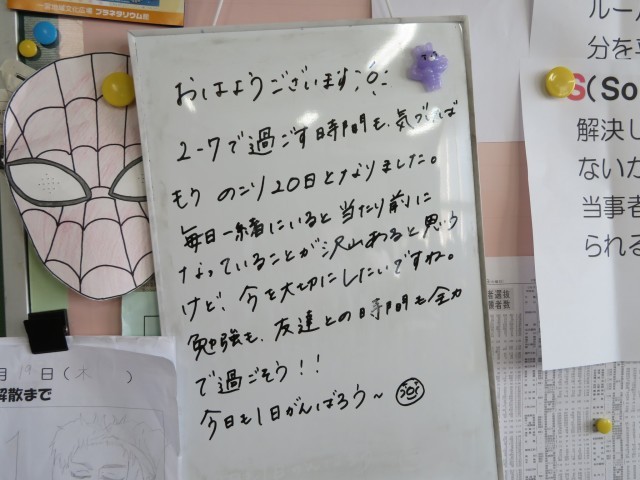 プラネタリウム
おはようございます
2-7で過ごす時間も、気づけば
もう のこり20日となりました。
毎日一緒にいると当たり前に
なっていることが沢山あると思う
けど、今を大切にしたいですね。
勉強も、友達との時間も全力
で過ごそう!!
今日も1日がんばろう~
月19日(木)
解散まで
ルー
分を
S(So
解決し
ないか
当事者
られる